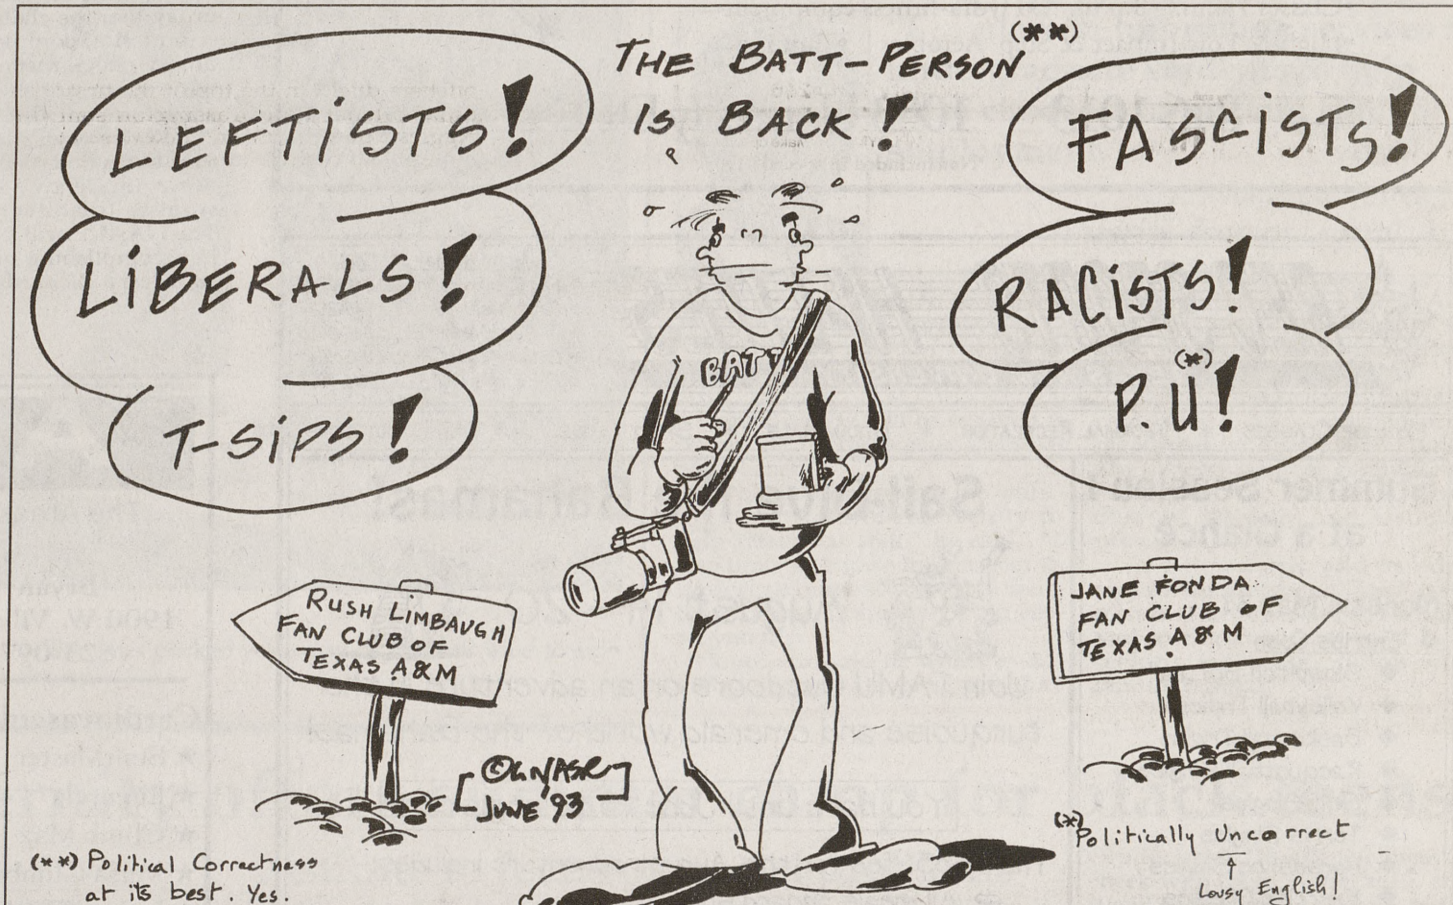 THE BATT-PERSON (**)
IS BACK!
LEFTISTS!
LIBERALS!
T-SIPS!
FASCISTS!
RACISTS!
P.U (*)!
BATT
RUSH LIMBAUGH
FAN CLUB OF
TEXAS A&M
JANE FONDA
FAN CLUB OF
TEXAS A&M
JUNE '93
(**) Political Correctness
at its best. Yes.
(*) Politically Uncorrect
Lousy English!